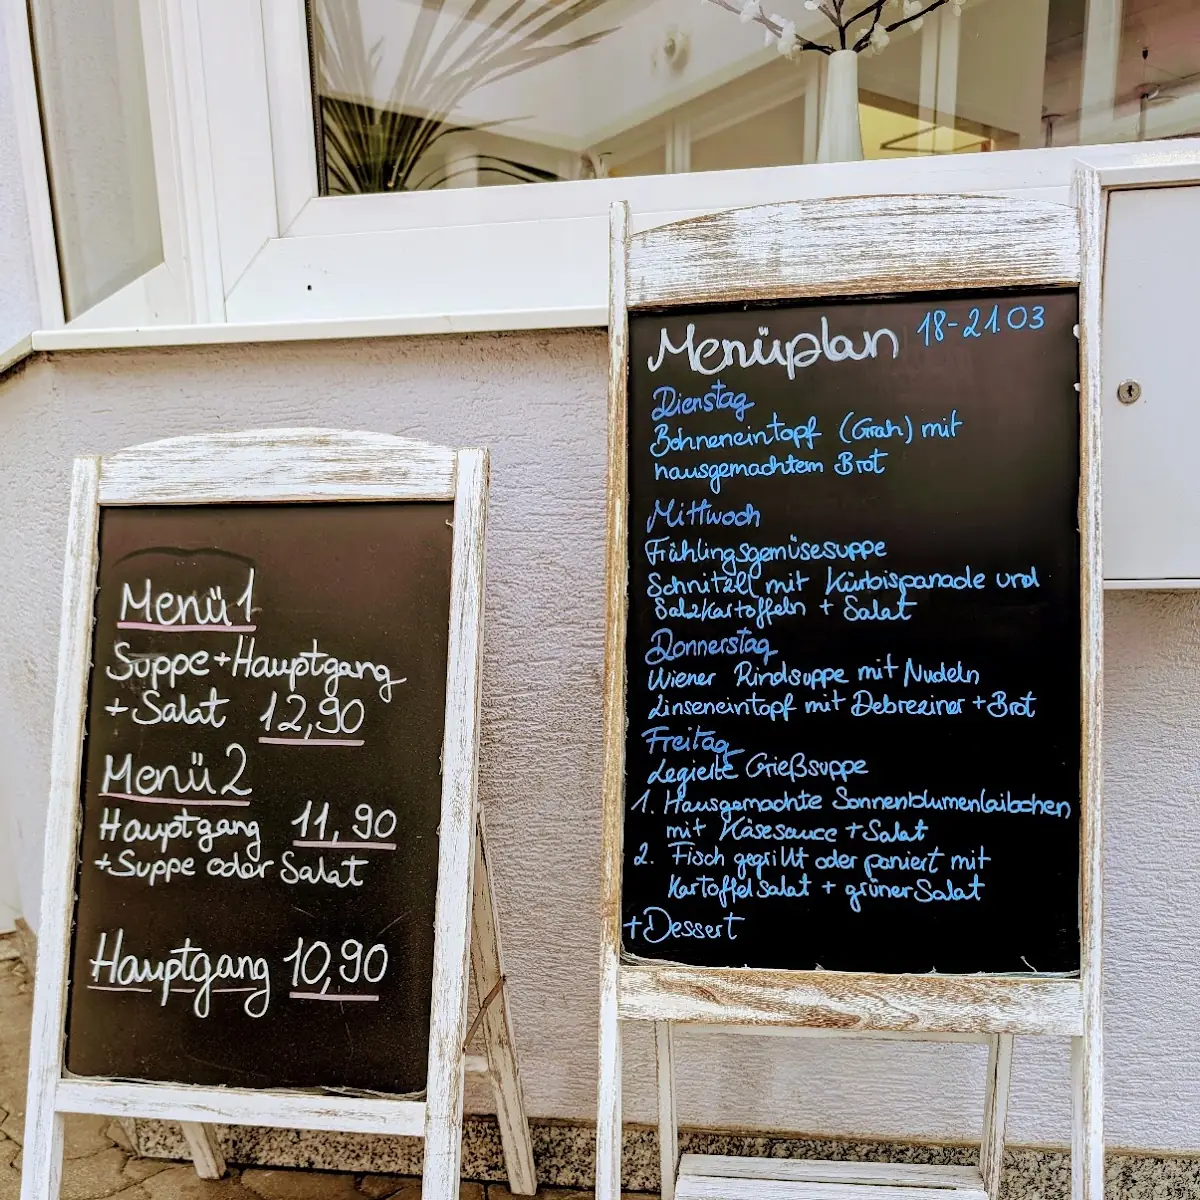 Menü 1
Suppe + Hauptgang
+ Salat 12,90
Menü 2
Hauptgang 11,90
+ Suppe oder Salat
Hauptgang 10,90
Menüplan 18-21.03
Dienstag
Bohneneintopf (Grah) mit
hausgemachtem Brot
Mittwoch
Frühlingsgemüsesuppe
Schnitzel mit Kürbispanade und
Salzkartoffeln + Salat
Donnerstag
Wiener Rindsuppe mit Nudeln
Linseneintopf mit Debreziner + Brot
Freitag
Legierte Grießsuppe
1. Hausgemachte Sonnenblumenlaibchen
mit Käsesauce + Salat
2. Fisch gegrillt oder paniert mit
Kartoffelsalat + grüner Salat
+ Dessert